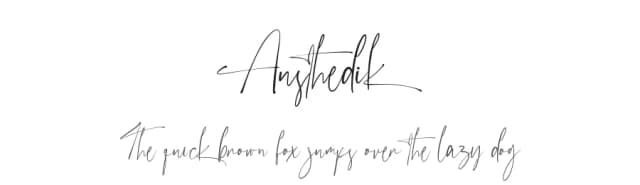 Ansthedik
The quick brown fox jumps over the lazy dog